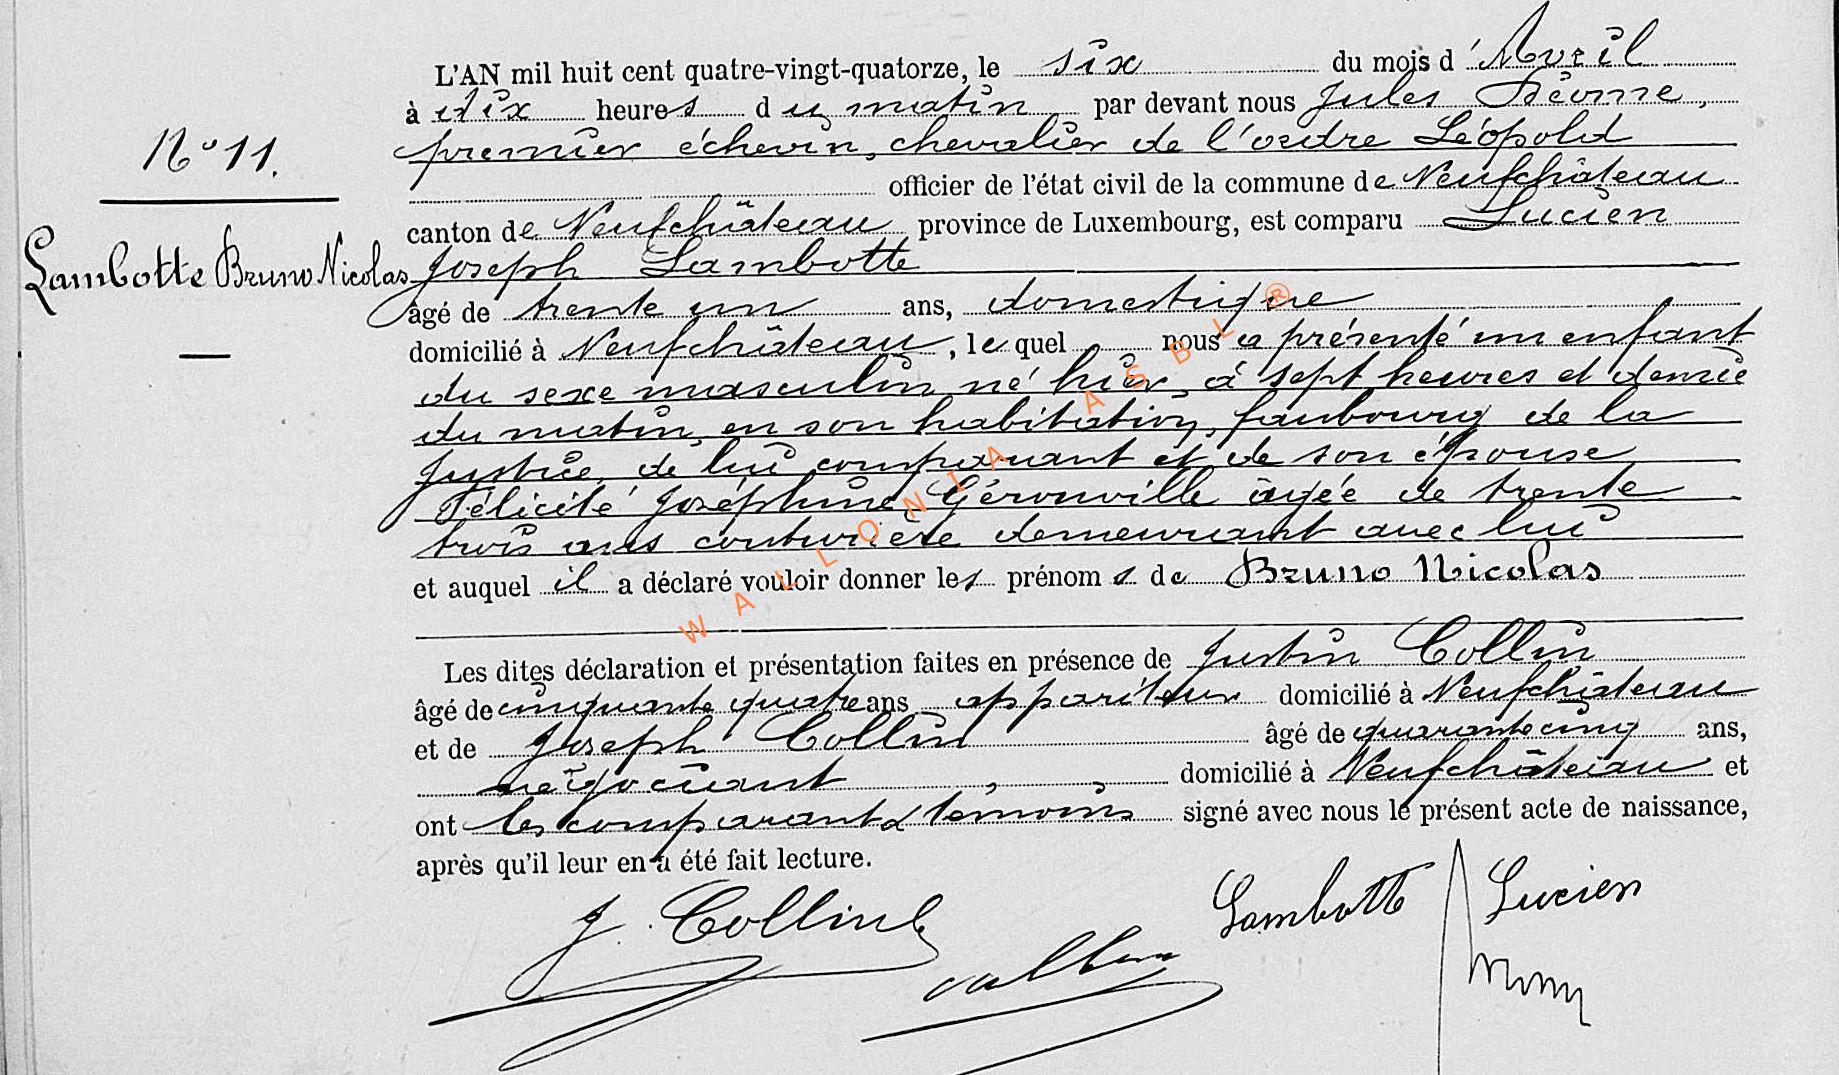 L'AN mil huit cent quatre-vingt-quatorze, le six du mois d'Avril
à dix heures du matin par devant nous Jules
premier échevin, chevalier de l'ordre Léopold
officier de l'état civil de la commune de Neufchâteau
canton de Neufchâteau province de Luxembourg, est comparu Lucien
Joseph Lambotte
âgé de trente un ans, domestique
domicilié à Neufchâteau, le quel nous a présenté un enfant
du sexe masculin, né hier, à sept heures et demie
du matin, en son habitation, faubourg de la
Justice, de lui comparant et de son épouse
Félicité Joséphine Géronville âgée de trente
trois ans couturière demeurant avec lui
et auquel il a déclaré vouloir donner les prénoms de Bruno Nicolas
Les dites déclaration et présentation faites en présence de Justin Collin
âgé de cinquante quatre ans appariteur domicilié à Neufchâteau
et de Joseph Collin âgé de quarante cinq ans,
négociant domicilié à Neufchâteau et
ont les comparant & témoins signé avec nous le présent acte de naissance,
après qu'il leur en a été fait lecture.
N° 11.
Lambotte Bruno Nicolas
J. Collin
Lambotte Lucien
WALLONIA ASBL ®